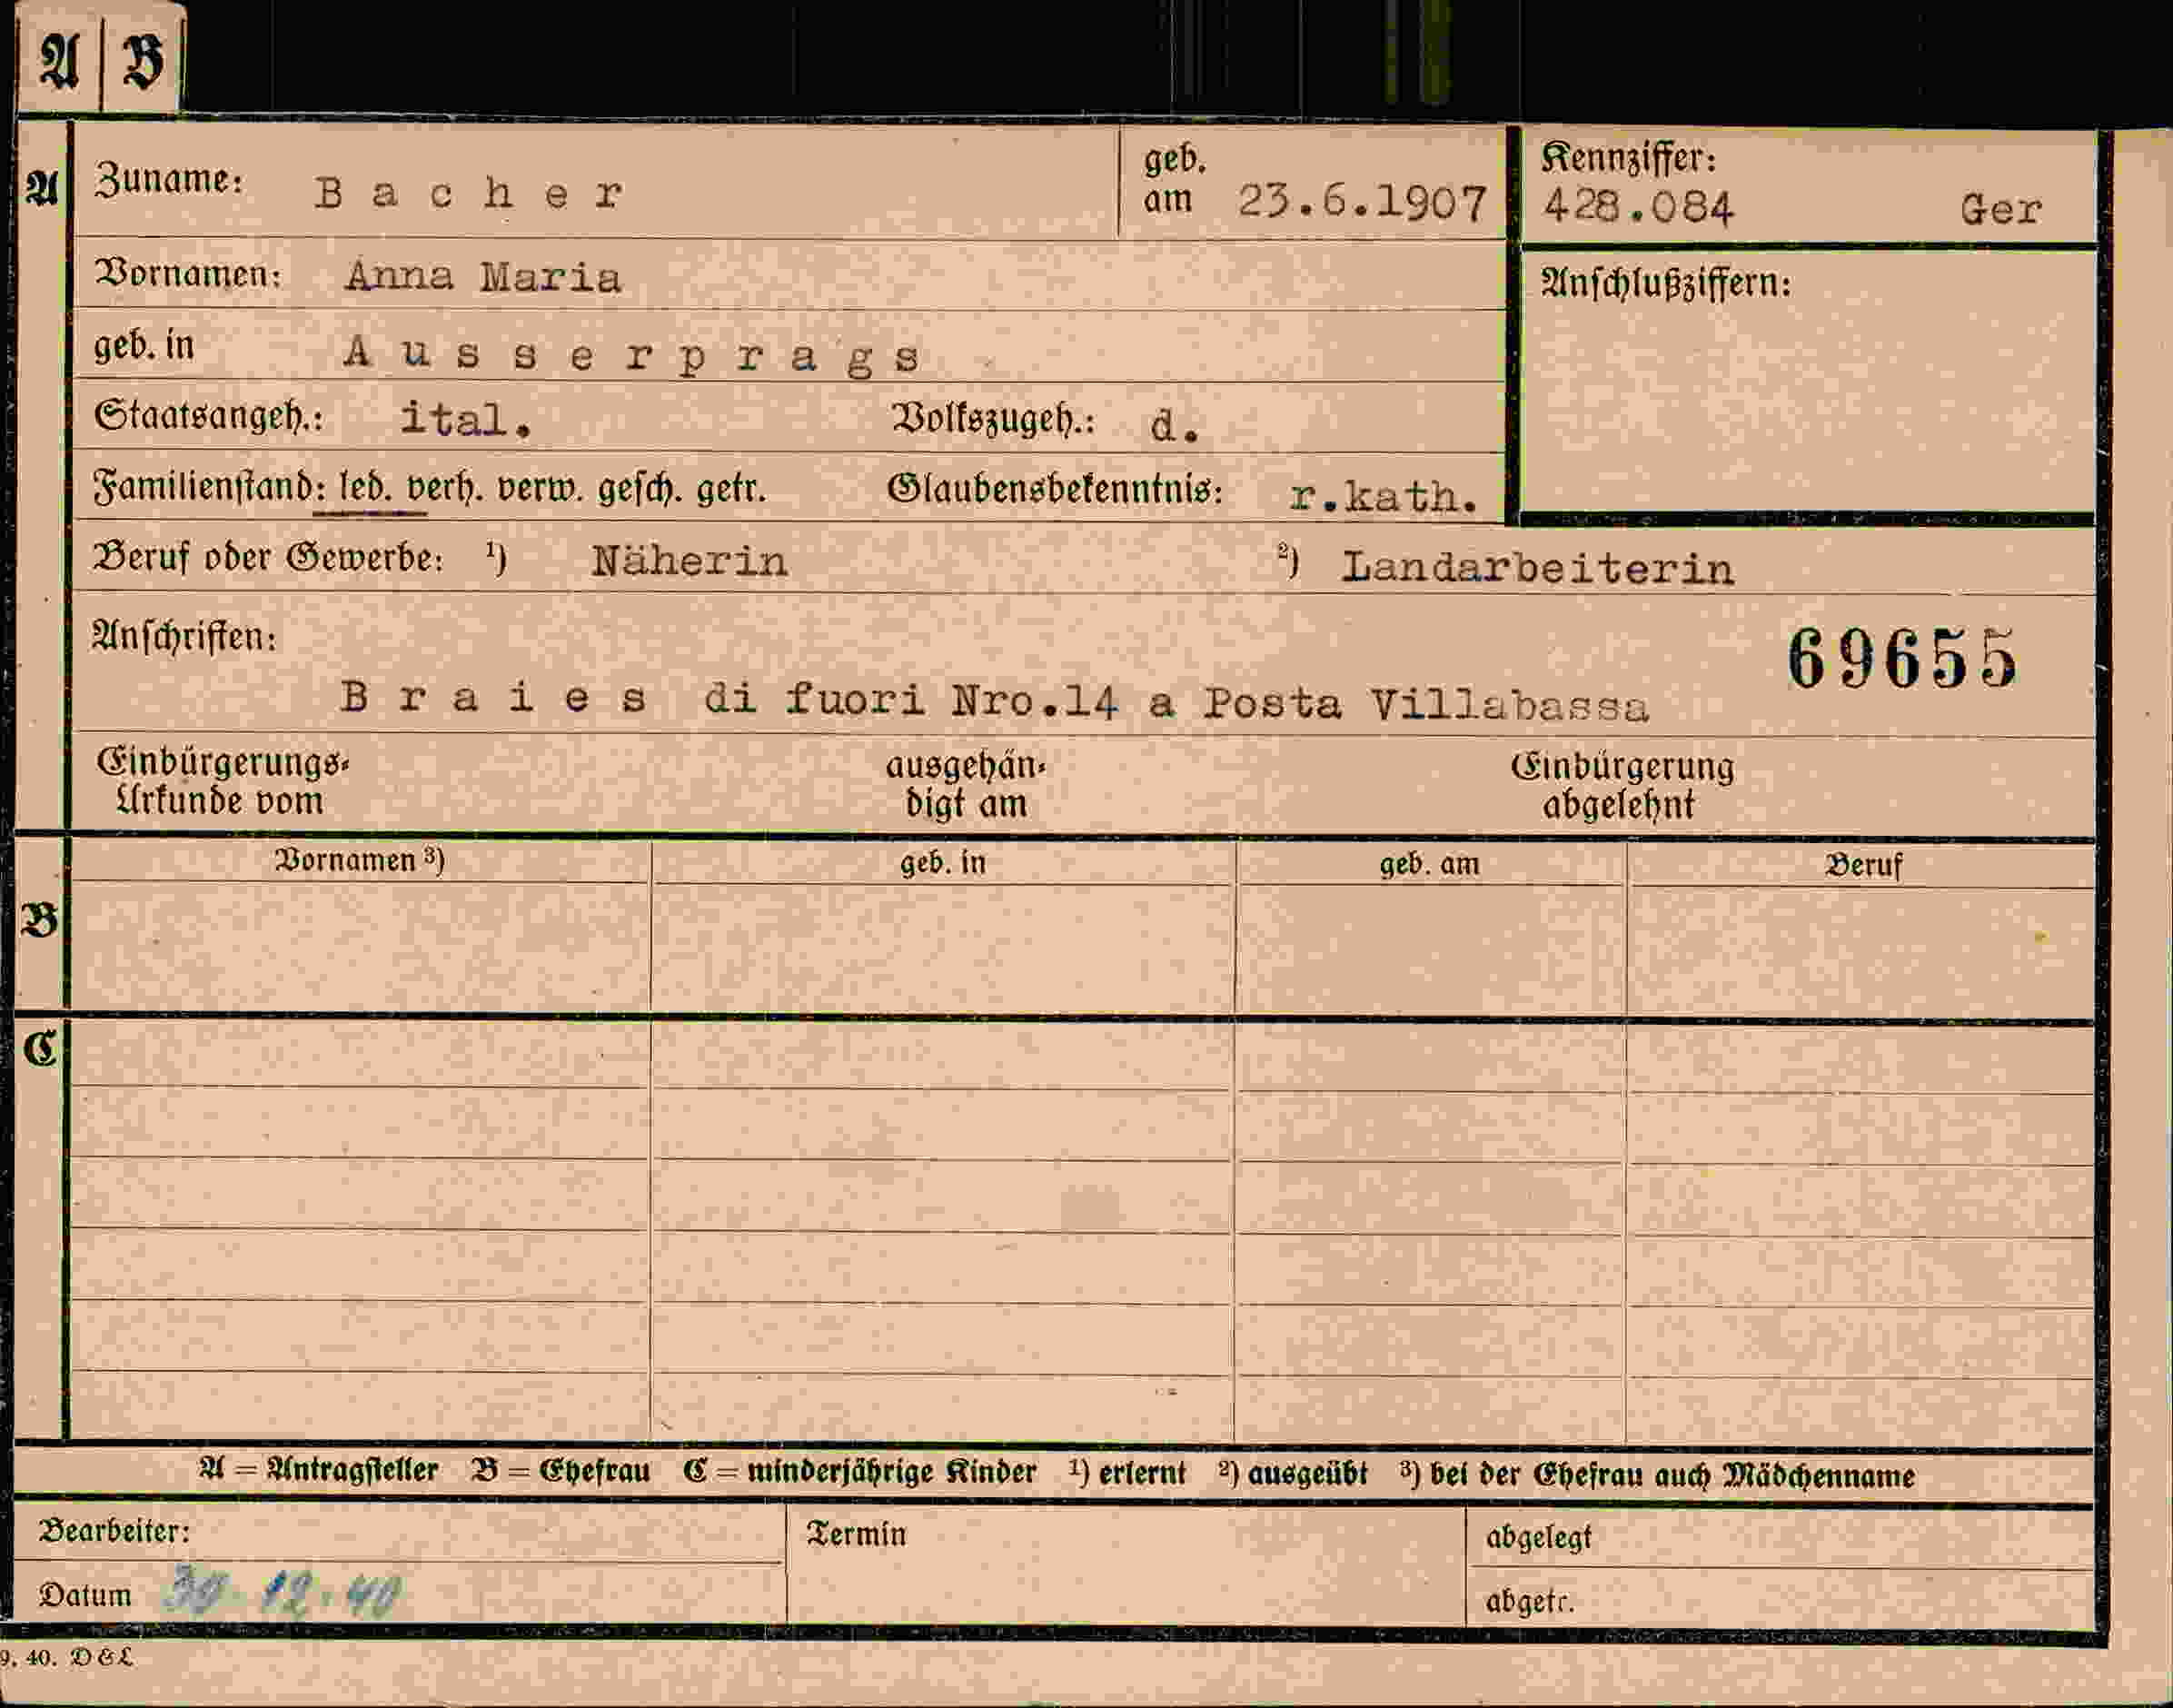 A B
A Zuname: Bacher geb. am 23.6.1907 Kennziffer: 428.084 Ger
Vornamen: Anna Maria Anschlußziffern:
geb. in Ausserprags
Staatsangeh.: ital. Volkszugeh.: d.
Familienstand: led. verh. verw. gesch. getr. Glaubensbekenntnis: r.kath.
Beruf oder Gewerbe: ¹) Näherin ²) Landarbeiterin
Anschriften: 69655
Braies di fuori Nro.14 a Posta Villabassa
Einbürgerungs- ausgehän- Einbürgerung
Urkunde vom digt am abgelehnt
Vornamen ³) geb. in geb. am Beruf
B
C
A = Antragsteller B = Ehefrau C = minderjährige Kinder ¹) erlernt ²) ausgeübt ³) bei der Ehefrau auch Mädchenname
Bearbeiter: Termin abgelegt
Datum 30.12.40 abgetr.
9. 40. D & L